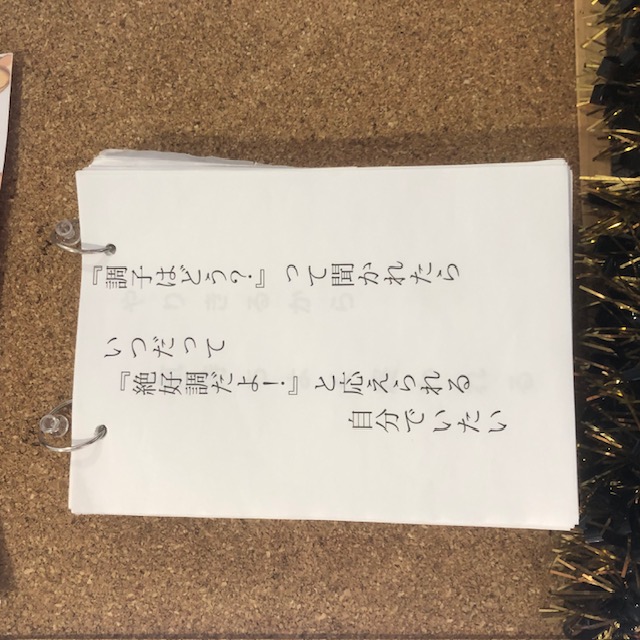 『調子はどう？』って聞かれたら
いつだって
『絶好調だよー！』と応えられる
自分でいたい